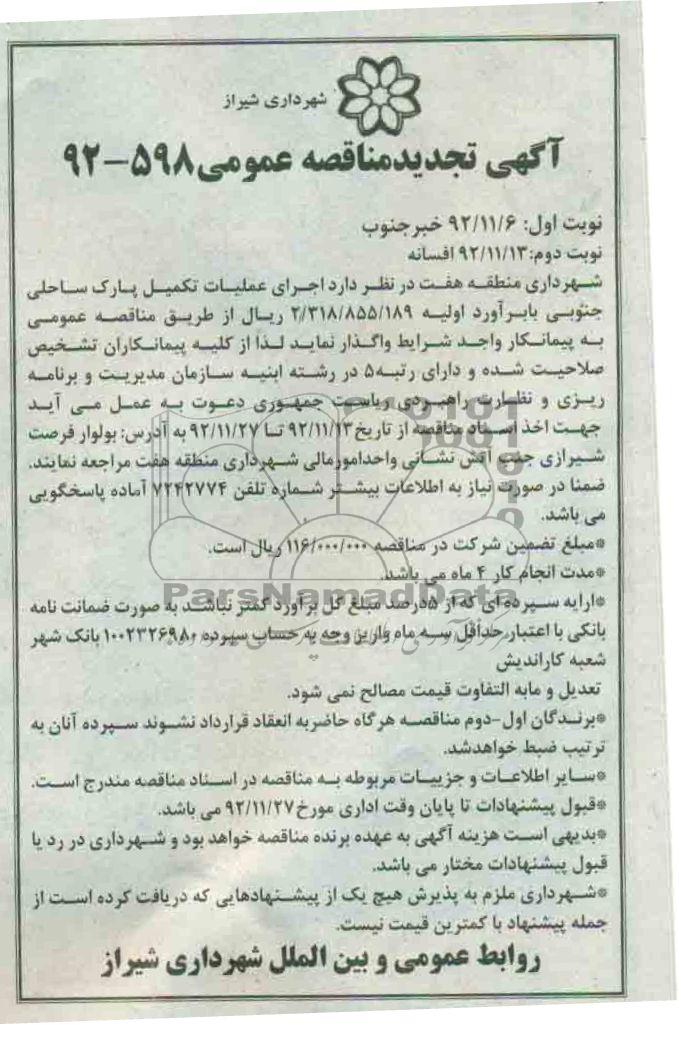 شهرداری شیراز
آگهی تجدیدمناقصه عمومی ۵۹۸-۹۲
نوبت اول: ۹۲/۱۱/۶ خبرجنوب
نوبت دوم:۹۲/۱۱/۱۳ افسانه
شهرداری منطقه هفت در نظر دارد اجرای عملیات تکمیل پارک ساحلی
جنوبی بابرآورد اولیه ۲/۳۱۸/۸۵۵/۱۸۹ ریال از طریق مناقصه عمومی
به پیمانکار واجد شرایط واگذار نماید لذا از کلیه پیمانکاران تشخیص
صلاحیت شده و دارای رتبه۵ در رشته ابنیه سازمان مدیریت و برنامه
ریزی و نظارت راهبردی ریاست جمهوری دعوت به عمل می آید
جهت اخذ اسناد مناقصه از تاریخ ۹۲/۱۱/۱۳ تا ۹۲/۱۱/۲۷ به آدرس: بولوار فرصت
شیرازی جنب آتش نشانی واحدامورمالی شهرداری منطقه هفت مراجعه نمایند.
ضمنا در صورت نیاز به اطلاعات بیشتر شماره تلفن ۷۲۴۲۷۷۴ آماده پاسخگویی
می باشد.
*مبلغ تضمین شرکت در مناقصه ۱۱۶/۰۰۰/۰۰۰ ریال است.
*مدت انجام کار ۴ ماه می باشد.
ParsNamadData
*ارایه سپرده ای که از ۵درصد مبلغ کل برآورد کمتر نباشد به صورت ضمانت نامه
بانکی با اعتبار حداقل سه ماه واریز وجه به حساب سپرده ۱۰۰۲۳۲۶۹۸۰ بانک شهر
شعبه کاراندیش
تعدیل و مابه التفاوت قیمت مصالح نمی شود.
*برندگان اول-دوم مناقصه هرگاه حاضربه انعقاد قرارداد نشوند سپرده آنان به
ترتیب ضبط خواهدشد.
*سایر اطلاعات و جزییات مربوطه به مناقصه در اسناد مناقصه مندرج است.
*قبول پیشنهادات تا پایان وقت اداری مورخ ۹۲/۱۱/۲۷ می باشد.
*بدیهی است هزینه آگهی به عهده برنده مناقصه خواهد بود و شهرداری در رد یا
قبول پیشنهادات مختار می باشد.
*شهرداری ملزم به پذیرش هیچ یک از پیشنهادهایی که دریافت کرده است از
جمله پیشنهاد با کمترین قیمت نیست.
روابط عمومی و بین الملل شهرداری شیراز